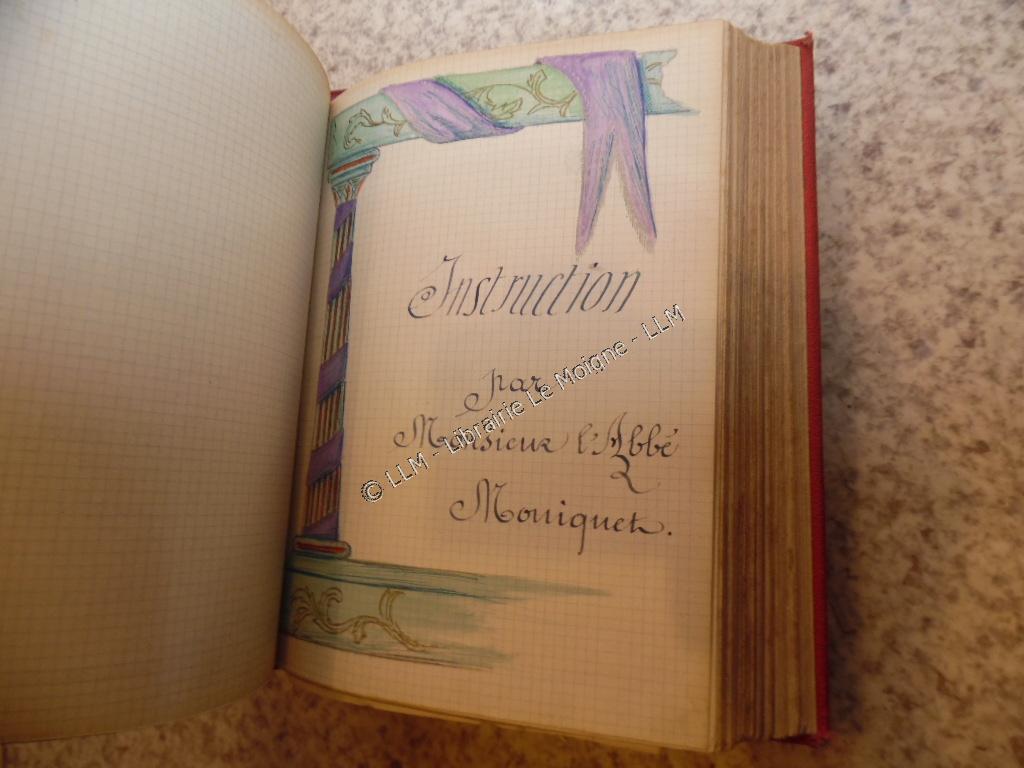 Instruction
par
Monsieur l'Abbé
Mouiquet.
© LLM - Librairie Le Moigne - LLM